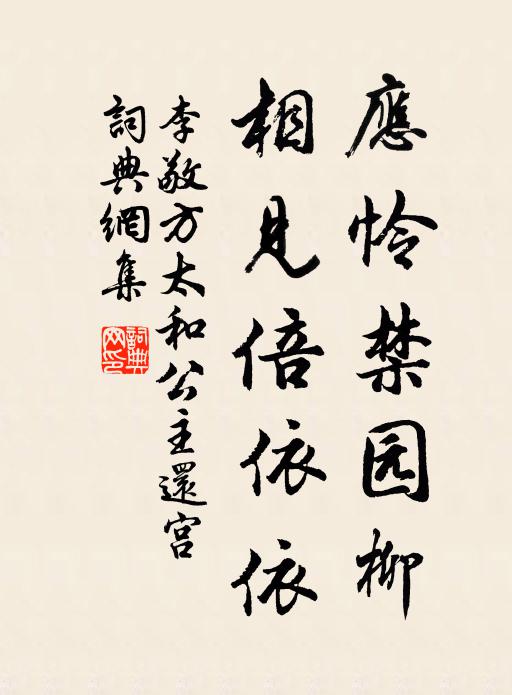 應怜禁园柳
相見倍依依
李敬方太和公主還宫
詞典網集
詞典网印